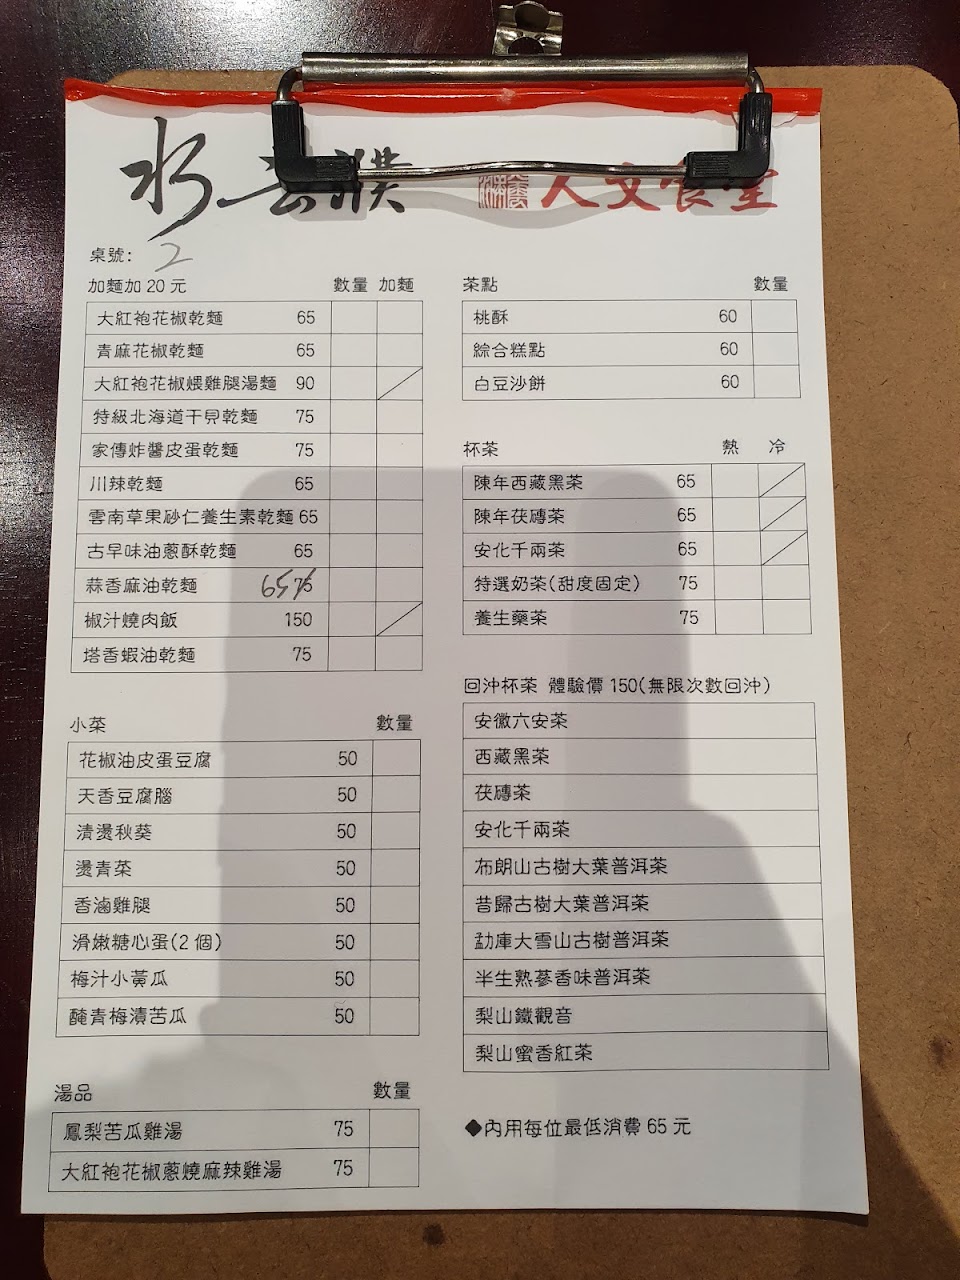 水雲濮 人文食堂
桌號: 2
加麵加 20 元 數量 加麵
大紅袍花椒乾麵 65
青麻花椒乾麵 65
大紅袍花椒煨雞腿湯麵 90
特級北海道干貝乾麵 75
家傳炸醬皮蛋乾麵 75
川辣乾麵 65
雲南草果砂仁養生素乾麵 65
古早味油蔥酥乾麵 65
蒜香麻油乾麵 65 75
椒汁燒肉飯 150
塔香蝦油乾麵 75
小菜 數量
花椒油皮蛋豆腐 50
天香豆腐腦 50
清燙秋葵 50
燙青菜 50
香滷雞腿 50
滑嫩糖心蛋(2 個) 50
梅汁小黃瓜 50
醃青梅漬苦瓜 50
湯品 數量
鳳梨苦瓜雞湯 75
大紅袍花椒蔥燒麻辣雞湯 75
茶點 數量
桃酥 60
綜合糕點 60
白豆沙餅 60
杯茶 熱 冷
陳年西藏黑茶 65
陳年茯磚茶 65
安化千兩茶 65
特選奶茶(甜度固定) 75
養生藥茶 75
回沖杯茶 體驗價 150(無限次數回沖)
安徽六安茶
西藏黑茶
茯磚茶
安化千兩茶
布朗山古樹大葉普洱茶
昔歸古樹大葉普洱茶
勐庫大雪山古樹普洱茶
半生熟蔘香味普洱茶
梨山鐵觀音
梨山蜜香紅茶
◆內用每位最低消費 65 元